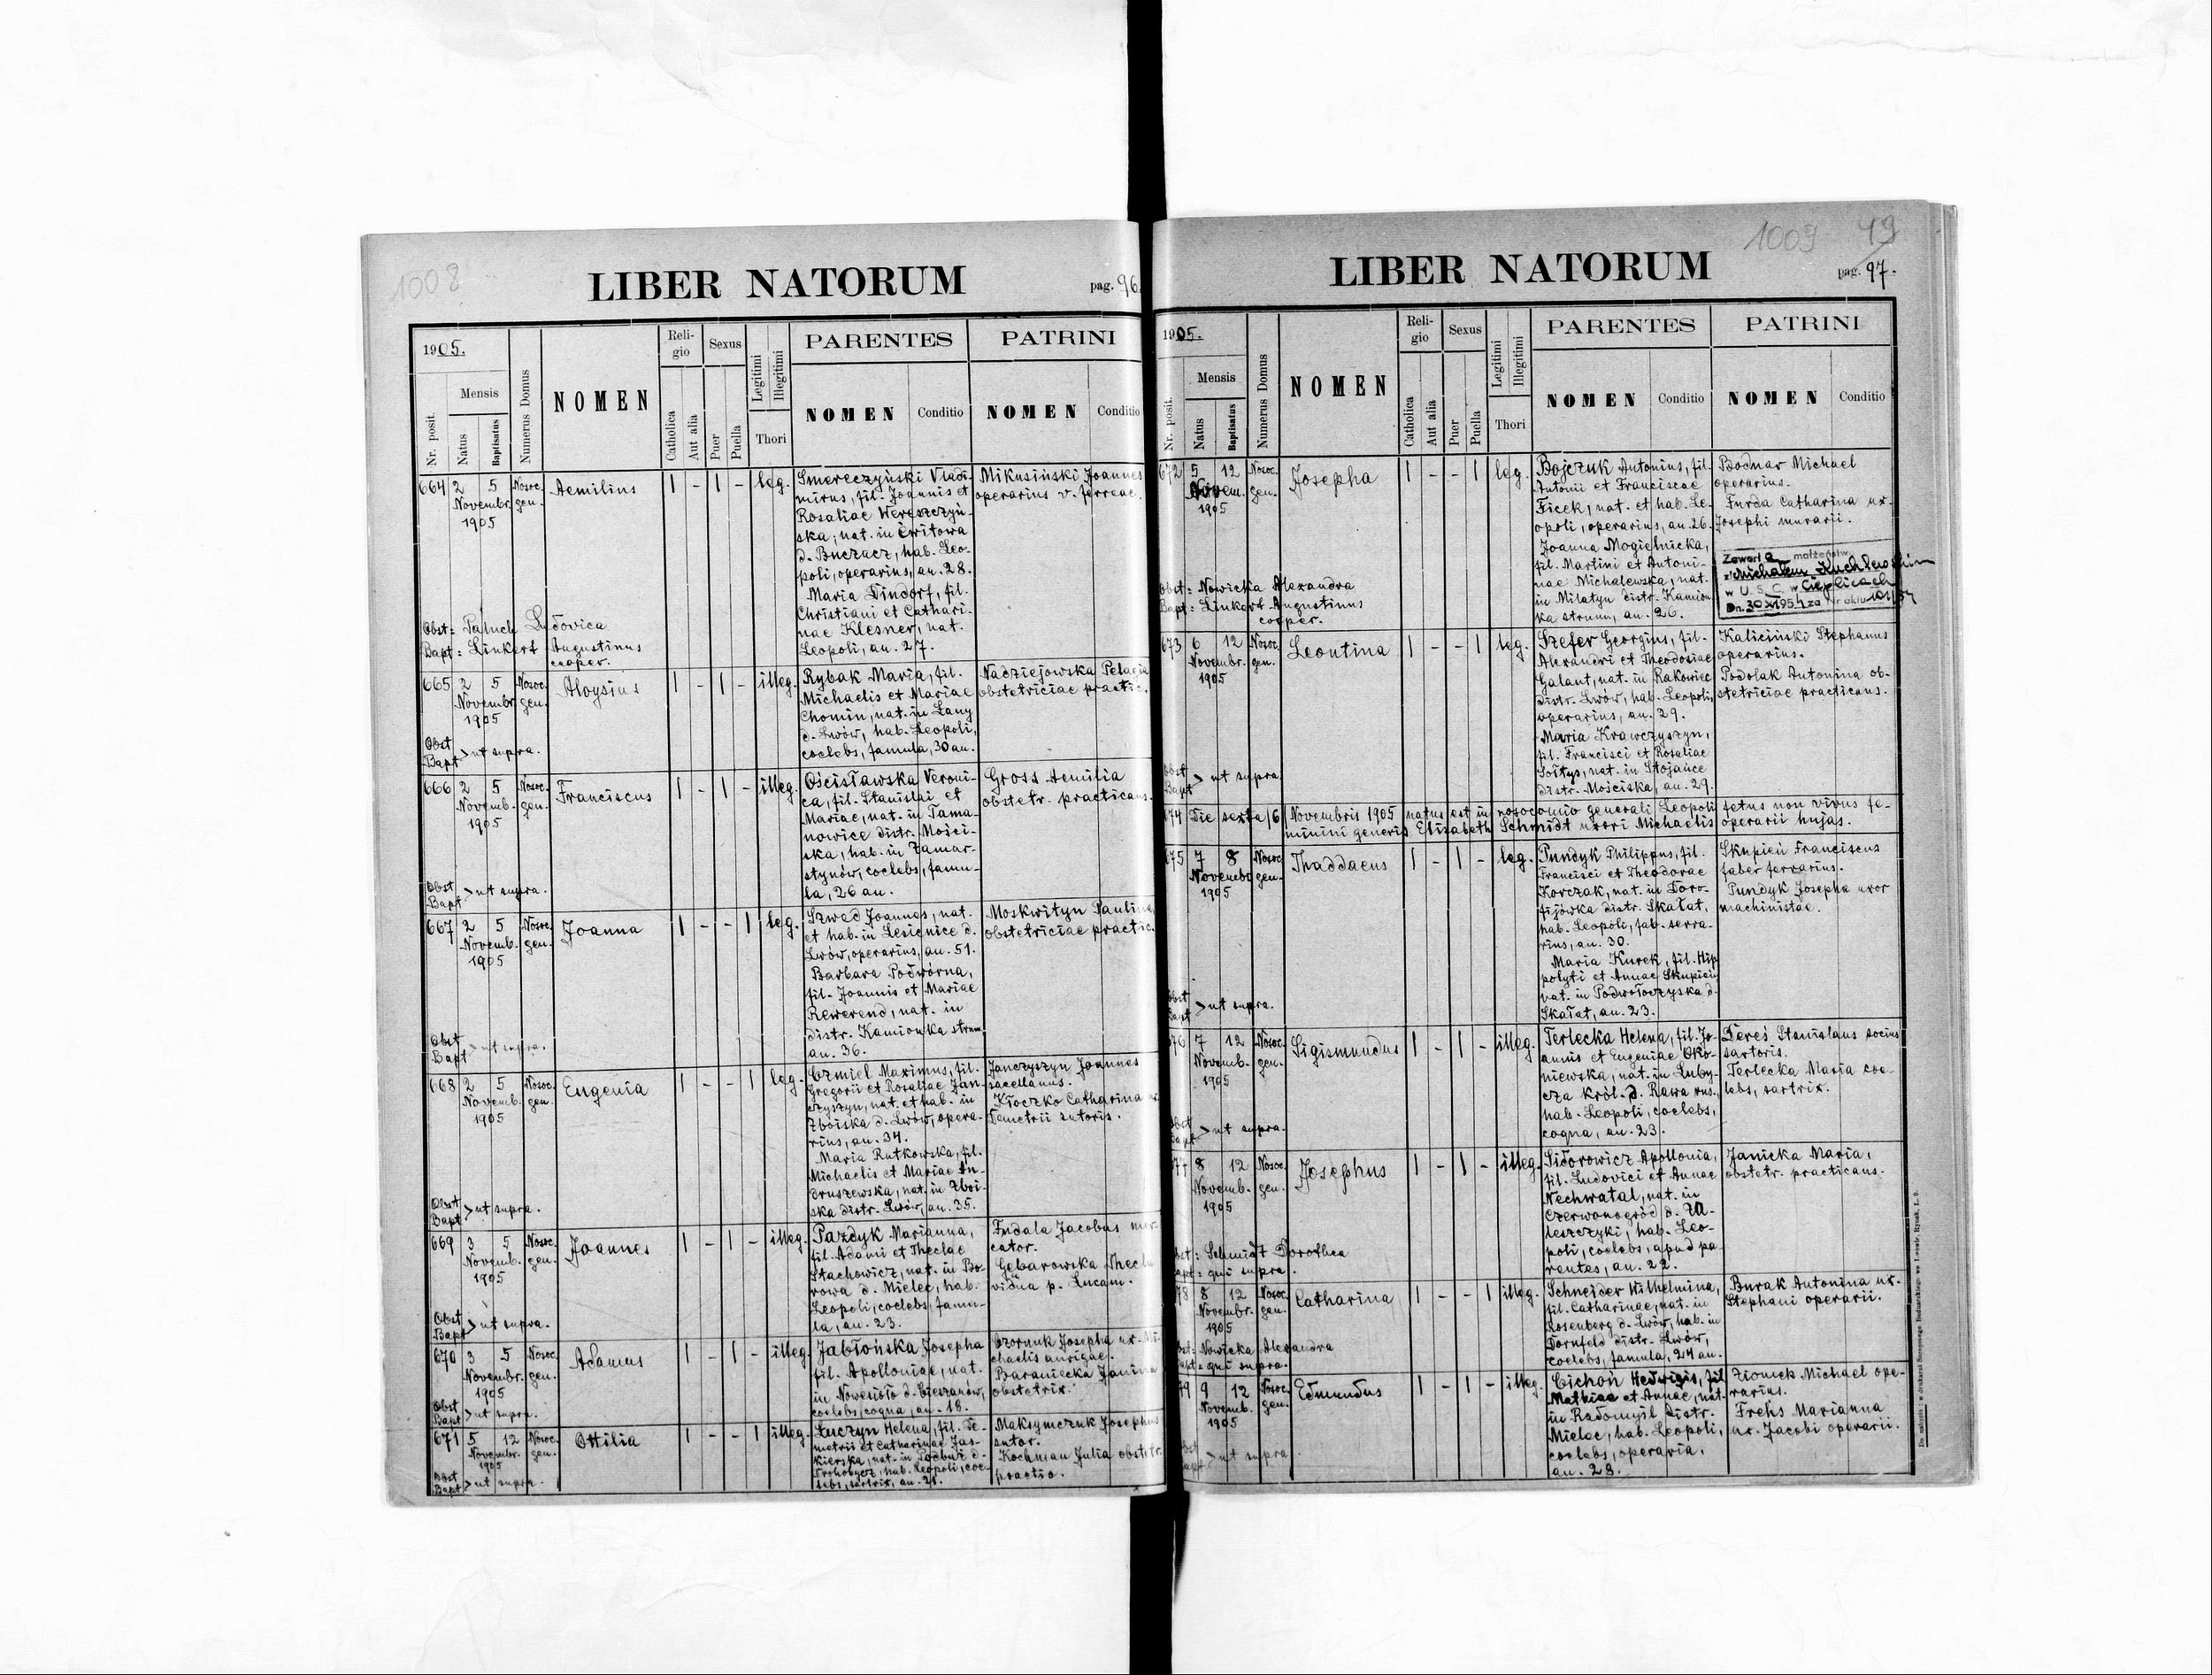 1008
LIBER NATORUM
pag. 96.
1905.
Nr. posit.
Mensis
Natus
Baptisatus
Numerus Domus
NOMEN
Reli-
gio
Catholica
Aut alia
Sexus
Puer
Puella
Legitimi
Illegitimi
Thori
PARENTES
NOMEN
Conditio
PATRINI
NOMEN
Conditio
664
2 5
Novembr.
1905
Nosoc.
gen.
Aemilius
1 - 1 -
leg.
Smereczyński Vladi-
mirus, fil. Joannis et
Rosaliae Wereszczyń-
ska, nat. in Cwitowa
d. Buczacz, hab. Leo-
poli, operarius, an. 28.
Maria Dindorf, fil.
Christiani et Cathari-
nae Klesner, nat.
Leopoli, an. 27.
Mikusiński Joannes
operarius v. ferreae.
Obst: Paluch Ludovica
Bapt: Linkert Augustinus
cooper.
665
2 5
Novembr.
1905
Nosoc.
gen.
Aloysius
1 - 1 -
illeg.
Rybak Maria, fil.
Michaelis et Mariae
Chomin, nat. in Lany
d. Lwów, hab. Leopoli,
coelebs, famula, 30 an.
Nadziejowska Pelagia
obstetriciae practic.
Obst
Bapt > ut supra.
666
2 5
Novemb.
1905
Nosoc.
gen.
Franciscus
1 - 1 -
illeg.
Ościsławska Veroni-
ca, fil. Stanislai et
Mariae, nat. in Tama-
nowice distr. Mości-
ska, hab. in Zamar-
stynów, coelebs, famu-
la, 26 an.
Gross Aemilia
obstetr. practicans.
Obst
Bapt > ut supra.
667
2 5
Novemb.
1905
Nosoc.
gen.
Joanna
1 - - 1
leg.
Szwed Joannes, nat.
et hab. in Lesienice d.
Lwów, operarius, an. 51.
Barbara Podwórna,
fil. Joannis et Mariae
Rewerend, nat. in
distr. Kamionka strum.
an. 36.
Moskwityn Paulina
obstetriciae practic.
Obst
Bapt > ut supra.
668
2 5
Novemb.
1905
Nosoc.
gen.
Eugenia
1 - - 1
leg.
Czmiel Maximus, fil.
Gregorii et Rosaliae Jan-
czyszyn, nat. et hab. in
Zboiska d. Lwów, opera-
rius, an. 34.
Maria Rutkowska, fil.
Michaelis et Mariae An-
druszewska, nat. in Zboi-
ska distr. Lwów, an. 35.
Janczyszyn Joannes
sacellanus.
Kłoczko Catharina
Demetrii sutoris.
Obst
Bapt > ut supra.
669
3 5
Novemb.
1905
Nosoc.
gen.
Joannes
1 - 1 -
illeg.
Pazdyk Marianna,
fil. Adami et Theclae
Stachowicz, nat. in Bo-
rowa d. Mielec, hab.
Leopoli, coelebs, famu-
la, an. 23.
Fudala Jacobus mer-
cator.
Gębarowska Thecla
vidua p. Lucam.
Obst
Bapt > ut supra.
670
3 5
Novembr.
1905
Nosoc.
gen.
Adamus
1 - 1 -
illeg.
Jabłońska Josepha
fil. Apolloniae, nat.
in Nowesioło d. Cieszanów,
coelebs, cogna, an. 18.
Czornuk Josepha ux. Mi-
chaelis aurigae.
Baraniecka Janina
obstetrix.
Obst
Bapt > ut supra.
671
5 12
Novembr.
1905
Nosoc.
gen.
Ottilia
1 - - 1
illeg.
Łuczyn Helena, fil. De-
metrii et Catharinae Jas-
kierska, nat. in Podbuż d.
Drohobycz, hab. Leopoli, coe-
lebs, sartrix, an. 21.
Maksymczuk Josephus
sutor.
Kochman Julia obstetr.
practic.
Obst
Bapt > ut supra.
1009
49
LIBER NATORUM
pag. 97.
1905.
Nr. posit.
Mensis
Natus
Baptisatus
Numerus Domus
NOMEN
Reli-
gio
Catholica
Aut alia
Sexus
Puer
Puella
Legitimi
Illegitimi
Thori
PARENTES
NOMEN
Conditio
PATRINI
NOMEN
Conditio
672
5 12
Novem.
1905
Nosoc.
gen.
Josepha
1 - - 1
leg.
Bojczuk Antonius, fil.
Antonii et Franciscae
Ficek, nat. et hab. Le-
opoli, operarius, an. 26.
Joanna Mogielnicka,
fil. Martini et Antoni-
nae Michalewska, nat.
in Milatyn distr. Kamion-
ka strum, an. 26.
Bodnar Michael
operarius.
Furda Catharina ux.
Josephi murarii.
Zawarł a małżeństw
z Michałem
w U. S. C. w Cieplicach
Dn. 30 XI 1954 za Nr aktu
Obst: Nowicka Alexandra
Bapt: Linkert Augustinus
cooper.
673
6 12
Novembr.
1905
Nosoc.
gen.
Leontina
1 - - 1
leg.
Szefer Georgius, fil.
Alexandri et Theodosiae
Galant, nat. in Rakowiec
distr. Lwów, hab. Leopoli,
operarius, an. 29.
Maria Krawczyszyn,
fil. Francisci et Rosaliae
Sołtys, nat. in Stojańce
distr. Mościska, an. 29.
Kaliciński Stephanus
operarius.
Podolak Antonina ob-
stetriciae practicans.
Obst
Bapt > ut supra
674 Die sexta /6 Novembris 1905 natus est in nosocomio generali Leopoli fetus non vivus fe-
minini generis Elisabeth Schmidt uxori Michaelis operarii hujas.
675
7 8
Novembr.
1905
Nosoc.
gen.
Thaddaeus
1 - 1 -
leg.
Pundyk Philippus, fil.
Francisci et Theodorae
Korczak, nat. in Doro-
fijówka distr. Skałat,
hab. Leopoli, fab. serra-
rius, an. 30.
Maria Kurek, fil. Hip-
polyti et Annae Skupień
nat. in Podwołoczyska d.
Skałat, an. 23.
Skupień Franciscus
faber ferrarius.
Pundyk Josepha uxor
machinistae.
Obst
Bapt > ut supra.
676
7 12
Novemb.
1905
Nosoc.
gen.
Sigismundus
1 - 1 -
illeg.
Terlecka Helena, fil. Jo-
annis et Eugeniae Oko-
niewska, nat. in Luby-
cza król. d. Rawa rus.,
hab. Leopoli, coelebs,
cogna, an. 23.
Dereś Stanislaus socius
sartoris.
Terlecka Maria coe-
lebs, sartrix.
Obst
Bapt > ut supra.
677
8 12
Novemb.
1905
Nosoc.
gen.
Josephus
1 - 1 -
illeg.
Sidorowicz Apollonia,
fil. Ludovici et Annae
Nechwatal, nat. in
Czerwonogród d. Za-
leszczyki, hab. Leo-
poli, coelebs, apud pa-
rentes, an. 22.
Janicka Maria,
obstetr. practicans.
Obst: Schmidt Dorothea
Bapt: qui supra.
678
8 12
Novembr.
1905
Nosoc.
gen.
Catharina
1 - - 1
illeg.
Schneider Wilhelmina,
fil. Catharinae, nat. in
Rosenberg d. Lwów, hab. in
Dornfeld distr. Lwów,
coelebs, famula, 24 an.
Burak Antonina ux.
Stephani operarii.
Obst: Nowicka Alexandra
Bapt: qui supra.
679
9 12
Novemb.
1905
Nosoc.
gen.
Edmundus
1 - 1 -
illeg.
Cichoń Hedwigis, fil
Mathiae et Annae, nat.
in Radomyśl distr.
Mielec, hab. Leopoli,
coelebs, operaria,
an. 28.
Zionek Michael ope-
rarius.
Frehs Marianna
ux. Jacobi operarii.
Obst
Bapt > ut supra